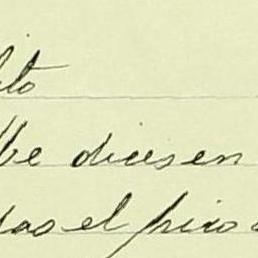 ito
Me dices en
das el piso